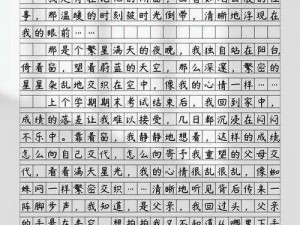 意，那温暖的时刻被时光倒带，清晰地浮现在
我的眼前……
那是个繁星满天的夜晚，我独自站在阳台，
倚着窗，望着蔚蓝的天空，那么深邃，繁密的
星星杂乱地交织在空中，像我的心情一样……
上个学期期末考试结束后，我回到家中，
成绩的落差让我难以接受，几日都沉浸在闷闷
不乐中。靠着窗，我静静地想着，这样的成绩
怎么向自己交代，怎么向寄予我重望的父母交
代，看着繁星，繁密的愁绪在心里交织，像蜘
蛛网一样繁密交织……清晰地听见背后传来一
阵脚步声，我知道，是父亲，我回过头，父亲